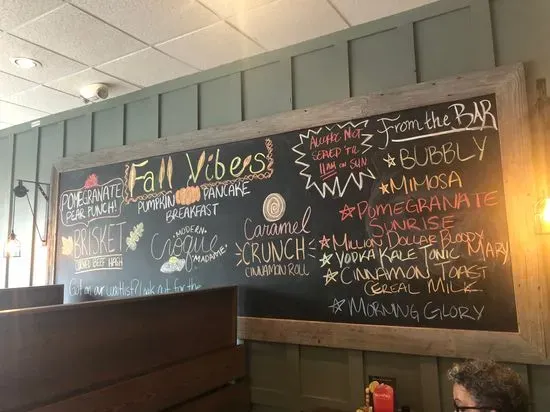 Fall Vibes
POMEGRANATE
PEAR PUNCH!
PUMPKIN PANCAKE
BREAKFAST
BRISKET
CORNED BEEF HASH
MODERN
Croque
MADAME
Caramel
CRUNCH
CINNAMON ROLL
Got on our waitlist? Look out for the
ALCOHOL NOT
SERVED 'TIL
11AM ON SUN
From the BAR
BUBBLY
MIMOSA
POMEGRANATE
SUNRISE
MILLION DOLLAR BLOODY
MARY
VODKA KALE TONIC
CINNAMON TOAST
CEREAL MILK
MORNING GLORY